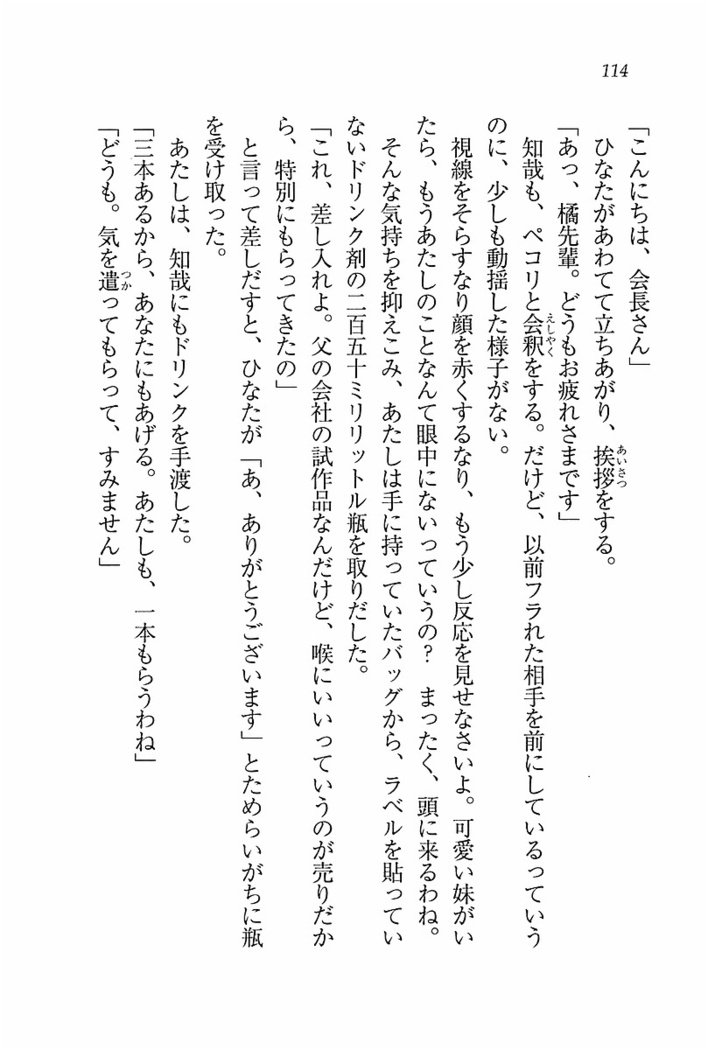 114
「こんにちは、会長さん」
ひなたがあわてて立ちあがり、挨拶をする。
「あっ、橘先輩。どうもお疲れさまです」
知哉も、ペコリと会釈をする。だけど、以前フラれた相手を前にしているっていう
のに、少しも動揺した様子がない。
視線をそらすなり顔を赤くするなり、もう少し反応を見せなさいよ。可愛い妹がい
たら、もうあたしのことなんて眼中にないっていうの？　まったく、頭に来るわね。
そんな気持ちを抑えこみ、あたしは手に持っていたバッグから、ラベルを貼ってい
ないドリンク剤の二百五十ミリリットル瓶を取りだした。
「これ、差し入れよ。父の会社の試作品なんだけど、喉にいいっていうのが売りだか
ら、特別にもらってきたの」
と言って差しだすと、ひなたが「あ、ありがとうございます」とためらいがちに瓶
を受け取った。
あたしは、知哉にもドリンクを手渡した。
「三本あるから、あなたにもあげる。あたしも、一本もらうわね」
「どうも。気を遣ってもらって、すみません」